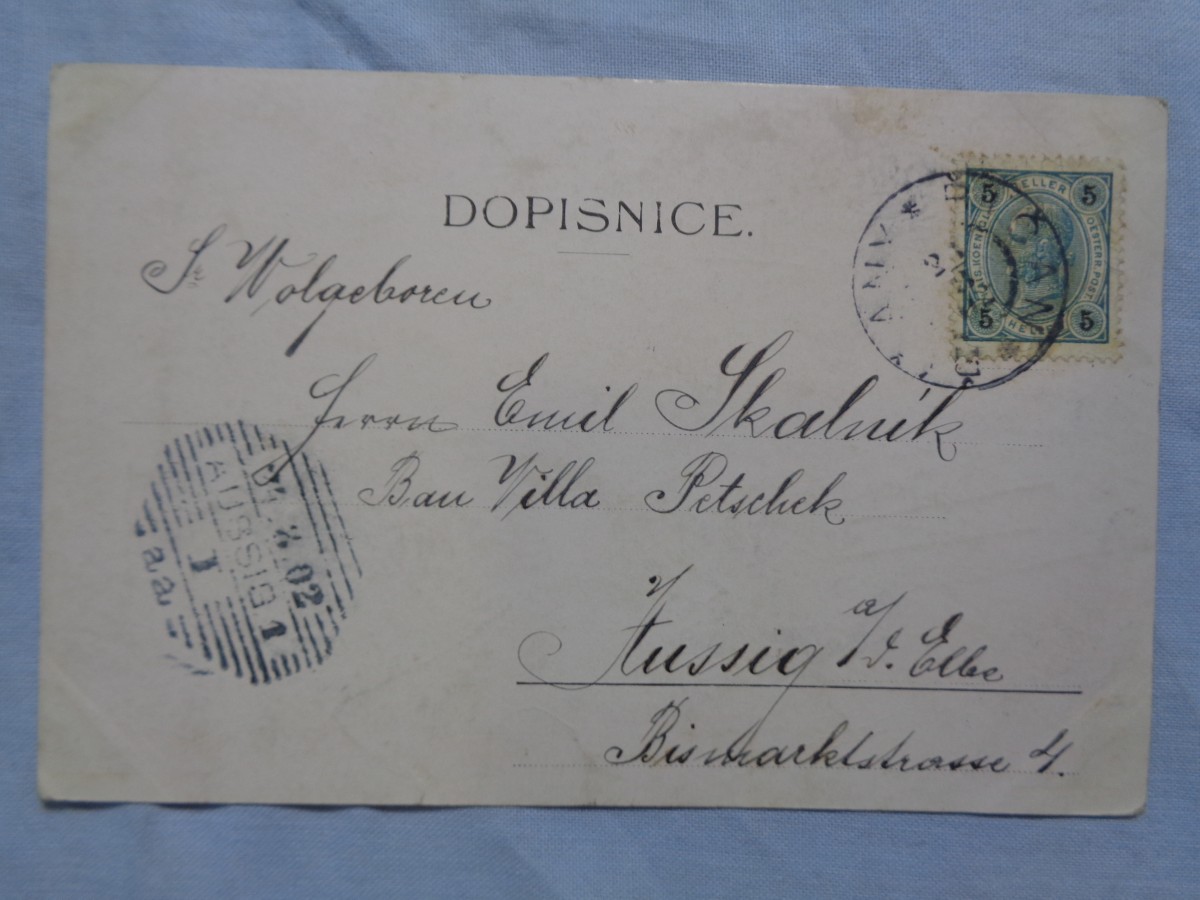 DOPISNICE.
5 HELLER 5
OESTERR. POST
5 HELLER 5
S. Wolgeboren
Herrn Emil Skalník
Bau Villa Petschek
Aussig a/d. Elbe
Bismarktstrasse 4.
AUSSIG 1
02
1